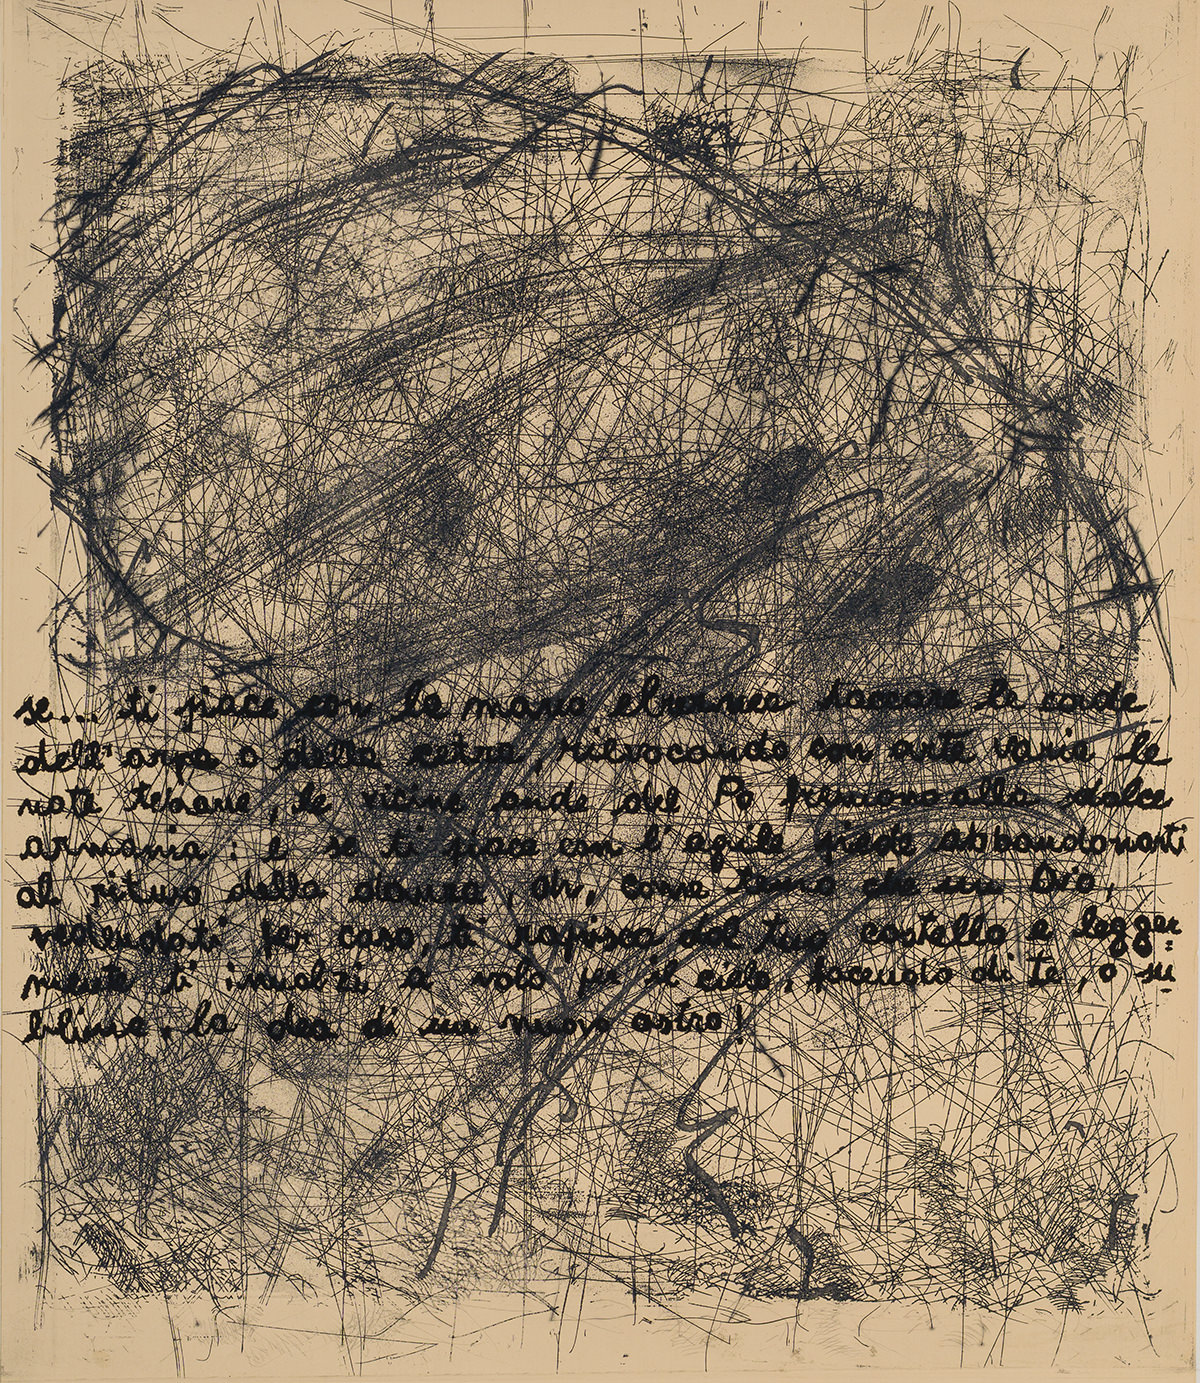 se... ti piace con la mano eburnea toccare le corde
dell'arpa o della cetra, con arte varie le
note, le vicine onde del Po fremono alla dolce
armonia: e se ti piace con l'agile piede abbandonarti
al ritmo della danza, oh, come temo che un Dio,
vedendoti per caso, ti rapisca dal tuo castello e legger
mente ti innalzi a volo per il cielo, facendo di te, o su
blime, la dea di un nuovo astro!